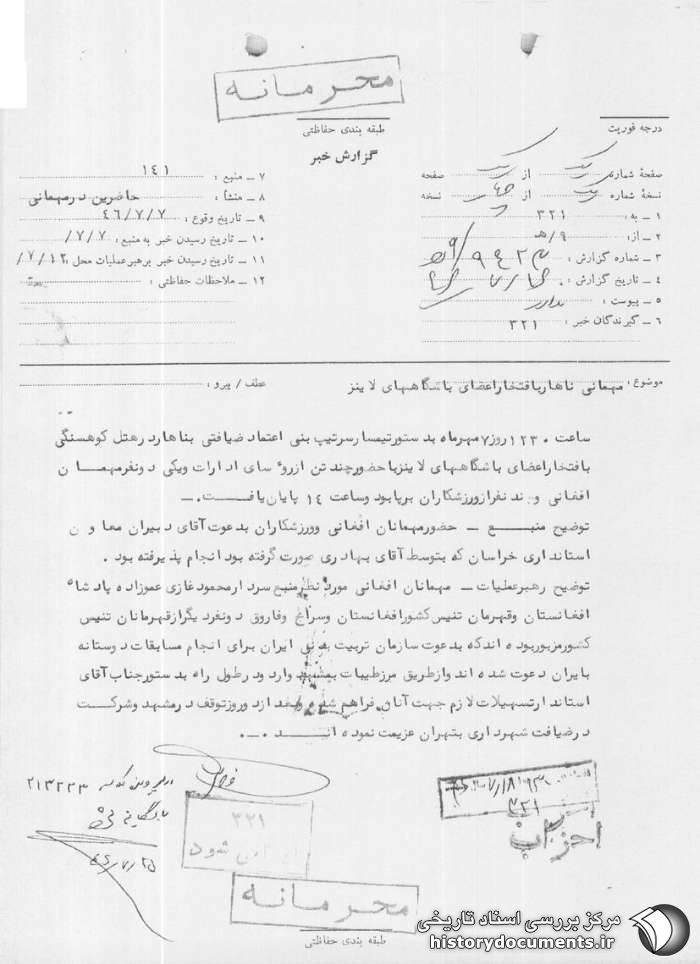 محرمانه
طبقه بندی حفاظتی
گزارش خبر
درجه فوریت
صفحهٔ شماره یک از یک صفحه
نسخهٔ شماره یک از چهار نسخه
۱ ـ به : ۳۲۱
۲ ـ از : ۹/هـ
۳ ـ شماره گزارش : ۹۴۲۳
۴ ـ تاریخ گزارش :
۵ ـ پیوست : ندارد
۶ ـ گیرندگان خبر : ۳۲۱
۷ ـ منبع : ۱۴۱
۸ ـ منشأ : حاضرین در مهمانی
۹ ـ تاریخ وقوع : ۴۶/۷/۷
۱۰ ـ تاریخ رسیدن خبر به منبع : ۷/۷/
۱۱ ـ تاریخ رسیدن خبر برهبر عملیات محل : ۷/۱۲/
۱۲ ـ ملاحظات حفاظتی :
موضوع : مهمانی ناهار بافتخار اعضای باشگاههای لاینز
عطف / پیرو :
ساعت ۱۲۳۰ روز ۷ مهرماه بدستور تیمسار سرتیپ بنی اعتماد ضیافتی بناهار در هتل کوهسنگی
بافتخار اعضای باشگاههای لاینز با حضور چند تن از روسای ادارات ویکی دونفر مهمان
افغانی و چند نفر از ورزشکاران برپا بود وساعت ۱۴ پایان یافت.ـ
توضیح منبع ـ حضور مهمانان افغانی وورزشکاران بدعوت آقای دبیران معاون
استانداری خراسان که بتوسط آقای بهادری صورت گرفته بود انجام پذیرفته بود .
توضیح رهبر عملیات ـ مهمانان افغانی مورد نظر منبع سردار محمود غازی عموزاده پادشاه
افغانستان وقهرمان تنیس کشور افغانستان و وفاروق دونفر دیگر از قهرمانان تنیس
کشور مزبور بوده اند که بدعوت سازمان تربیت بدنی ایران برای انجام مسابقات دوستانه
بایران دعوت شده اند واز طریق مرز طیبات بمشهد وارد ودر طول راه بدستور جناب آقای
استاندار تسهیلات لازم جهت آنان فراهم شده وبعد از دوروز توقف در مشهد وشرکت
در ضیافت شهرداری بتهران عزیمت نموده اند .ـ.
۲۱۳۲۳۳
۴۶/۷/۲۵
۳۲۱
شود
۳۲۱
احزاب
محرمانه
طبقه بندی حفاظتی
مرکز بررسی اسناد تاریخی
historydocuments.ir